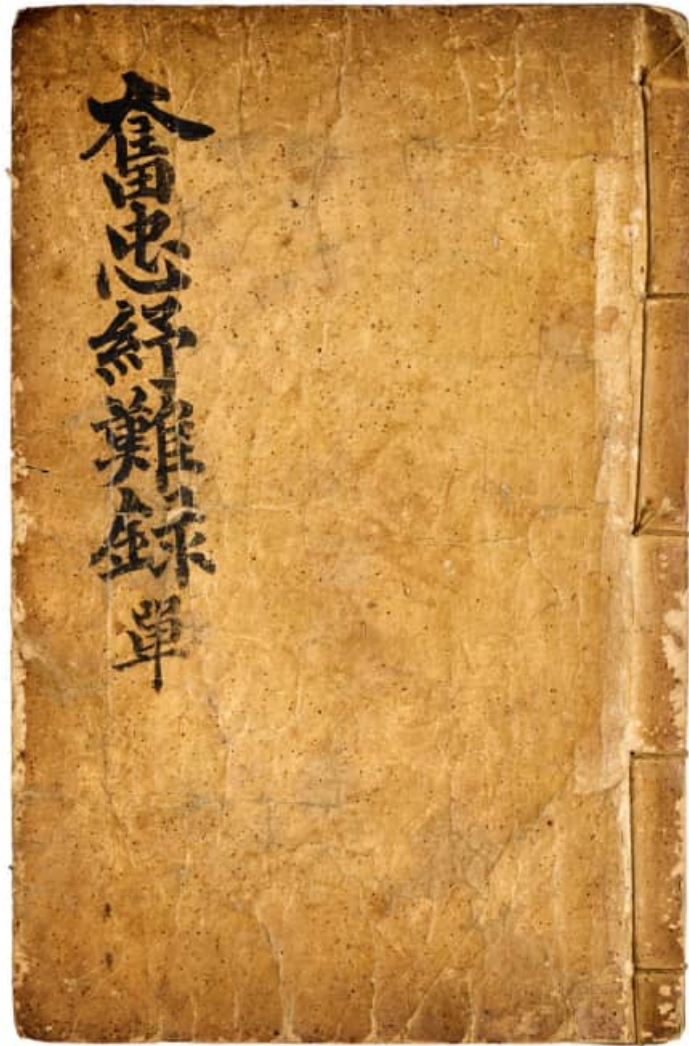 奮忠紓難錄 單